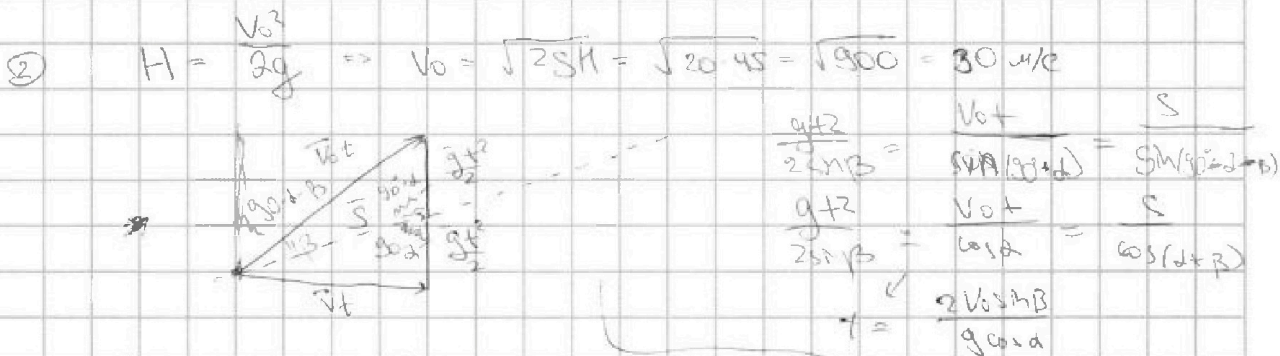 ② H = V₀²/2g => V₀ = √2gH = √20·45 = √900 = 30 м/с
V̄₀t
ḡt²/2
90-α-β
S̄
90+α
β
90-α
ḡt²/2
V̄t
gt²/2sinβ = V₀t/sin(90+α) = S/sin(90-α-β)
gt²/2sinβ = V₀t/cosα = S/cos(α+β)
t = 2V₀sinβ/gcosα